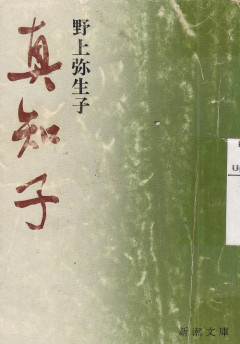 野上弥生子
真知子
新潮文庫